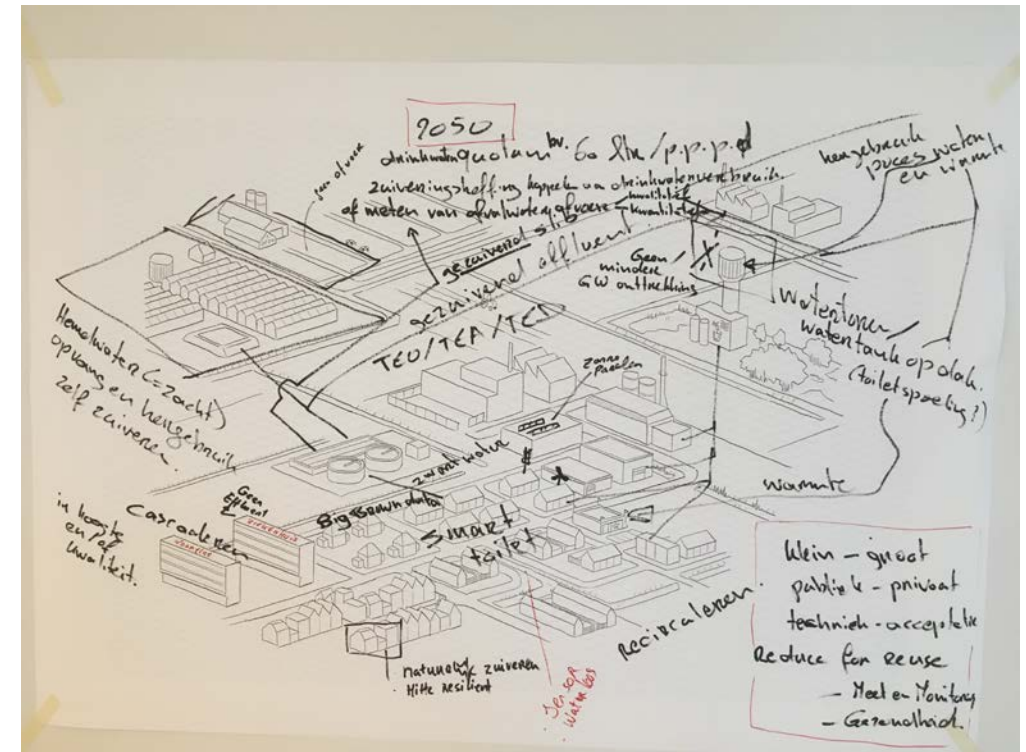 2050
drinkwaterquotum bv. 60 ltr/p.p.p.d
zuiveringsheffing koppelen aan drinkwaterverbruik
of meten van afvalwater afvoer
kwaliteit
kwantiteit
geen afvoer
hergebruik
proces water
en warmte
gezuiverd slib
gezuiverd effluent
TEO/TEA/TED
Geen
mindere
GW onttrekking
Watertoren
watertank op dak.
(toiletspoeling?)
Hemelwater (=zacht)
opvang en hergebruik
zelf zuiveren.
zonne
panelen
zwart water
warmte
Geen
Effluent
Big Brown data
Smart
toilet
Cascaderen
in hoogte
en
kwaliteit.
ziekenhuis
recirculeren.
natuurlijk zuiveren
Hitte resilient
Sensor
Water
klein - groot
publiek - privaat
techniek - acceptatie
Reduce for reuse
- Meet en Monitoring
- Gezondheid.